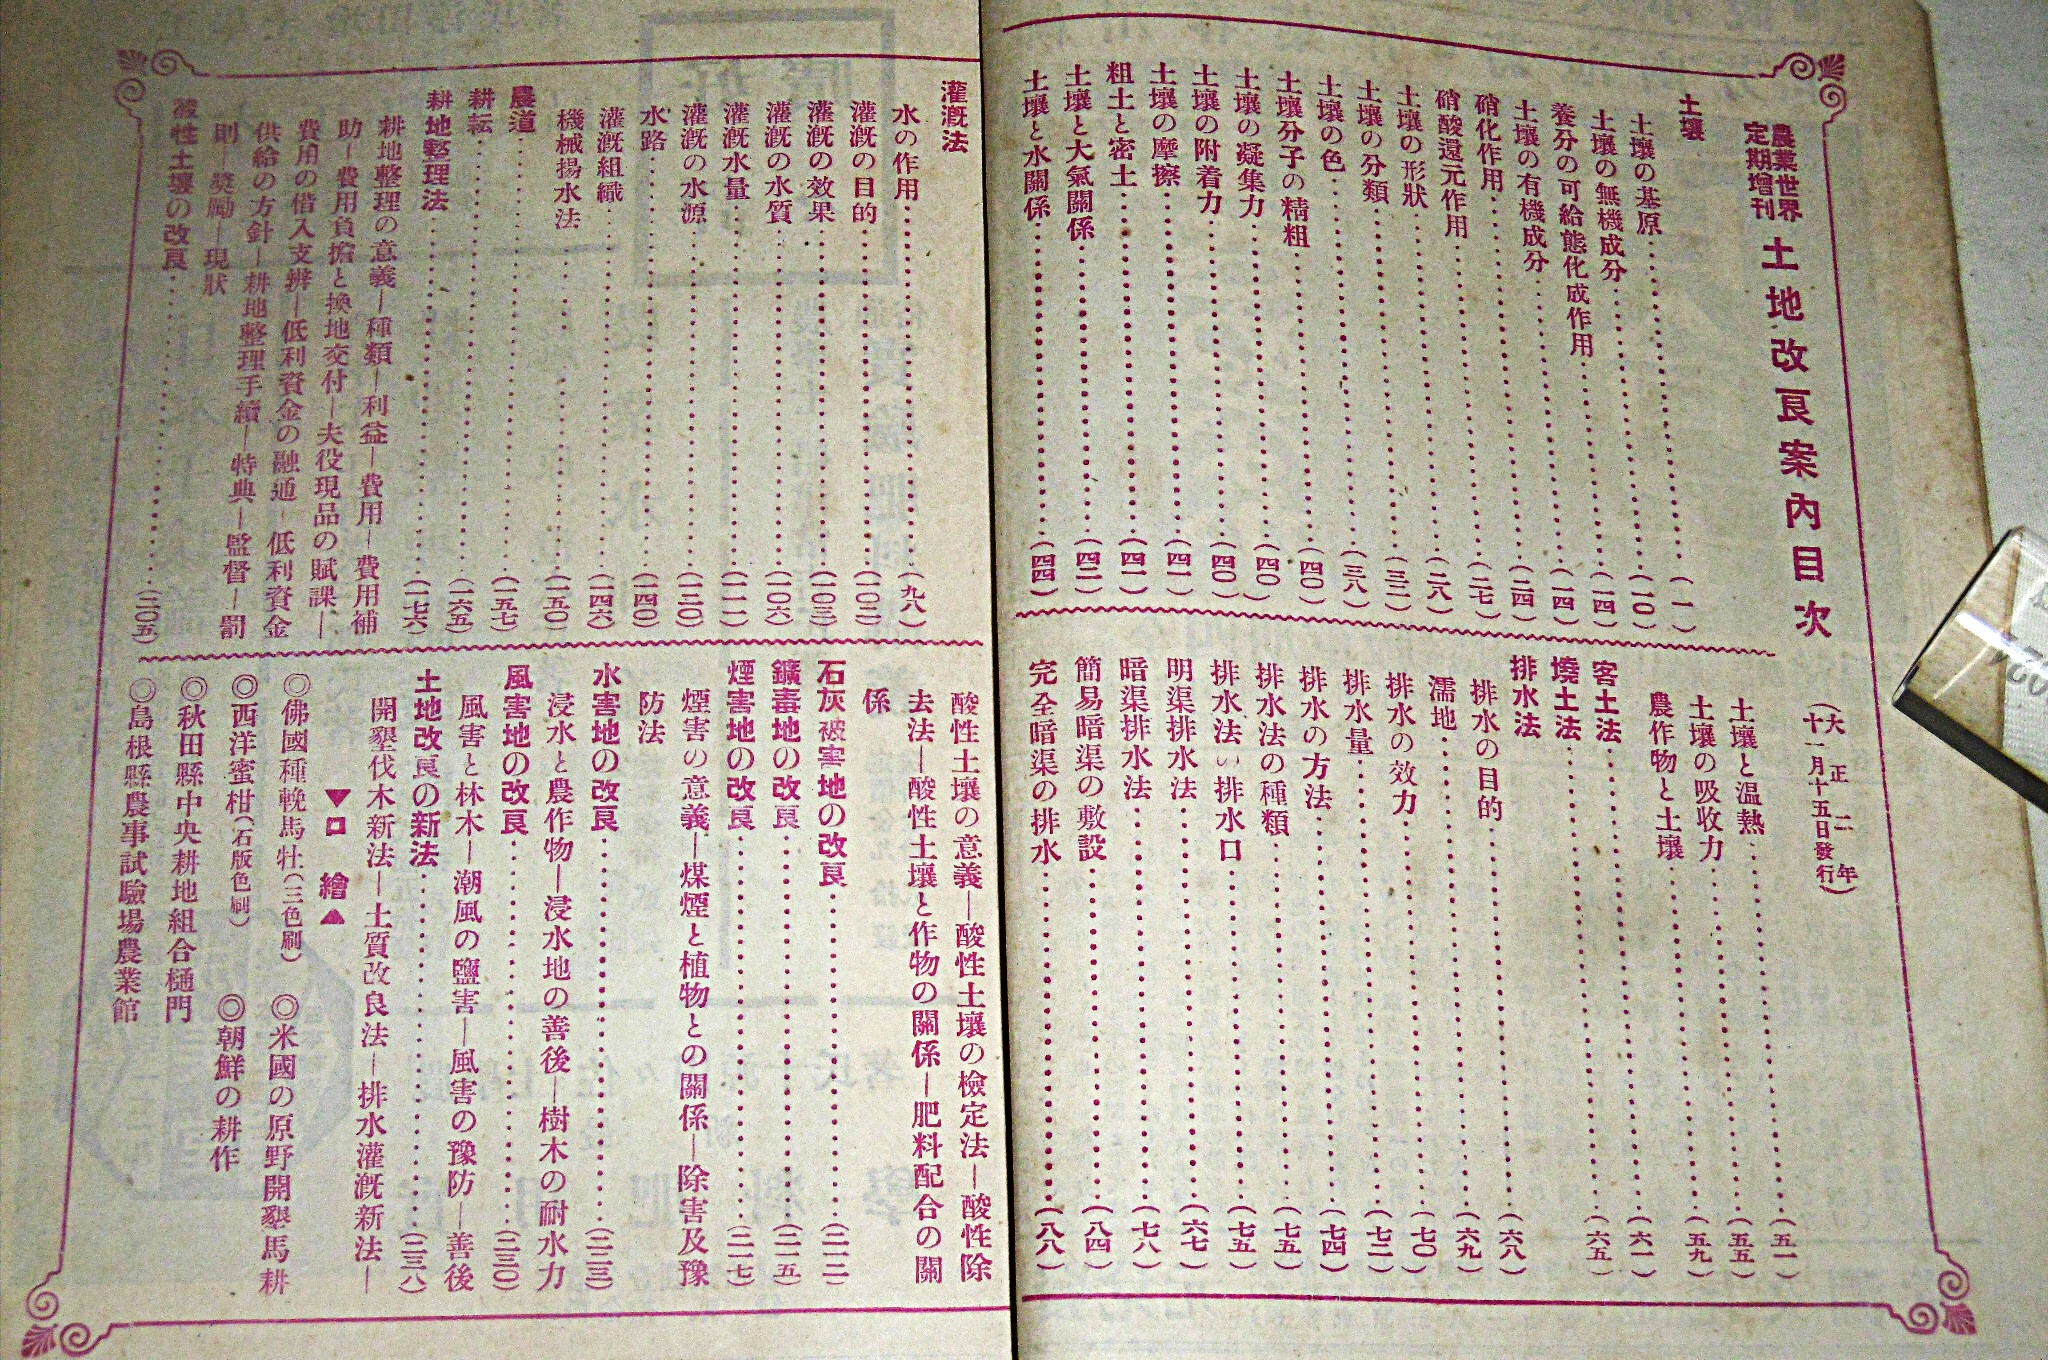 農業世界
定期增刊
土地改良案內目次
(大正二年
十一月十五日發行)
土壤
土壤の基原(一)
土壤の無機成分(一〇)
養分の可給態化成作用(一四)
土壤の有機成分(一四)
硝化作用(二四)
硝酸還元作用(二七)
土壤の形狀(二八)
土壤の分類(三三)
土壤の色(三八)
土壤分子の精粗(四〇)
土壤の凝集力(四〇)
土壤の附着力(四〇)
土壤の摩擦(四一)
粗土と密土(四一)
土壤と大氣關係(四二)
土壤と水關係(四四)
土壤と溫熱(五一)
土壤の吸收力(五五)
農作物と土壤(五九)
客土法(六一)
燒土法(六五)
排水法
排水の目的(六八)
濡地(六九)
排水の効力(七〇)
排水量(七二)
排水の方法(七四)
排水法の種類(七五)
排水法い排水口(七五)
明渠排水法(六七)
暗渠排水法(七八)
簡易暗渠の敷設(八四)
完全暗渠の排水(八八)
灌漑法
水の作用(九八)
灌漑の目的(一〇二)
灌漑の効果(一〇三)
灌漑の水質(一〇六)
灌漑水量(一一一)
灌漑の水源(一三〇)
水路(一四〇)
灌漑組織(一四六)
機械揚水法(一五〇)
農道(一五七)
耕耘(一六五)
耕地整理法(一七六)
耕地整理の意義—種類—利益—費用—費用補
助—費用負擔と換地交付—夫役現品の賦課—
費用の借入支辨—低利資金の融通—低利資金
供給の方針—耕地整理手續—特典—監督—罰
則—奬勵—現狀
酸性土壤の改良(二〇五)
酸性土壤の意義—酸性土壤の檢定法—酸性除
去法—酸性土壤と作物の關係—肥料配合の關
係
石灰被害地の改良(二一二)
鑛毒地の改良(二一五)
煙害地の改良(二一七)
煙害の意義—煤煙と植物との關係—除害及豫
防法
水害地の改良(二二三)
浸水と農作物—浸水地の善後—樹木の耐水力
風害地の改良(二三〇)
風害と林木—潮風の鹽害—風害の豫防—善後
土地改良の新法(二三八)
開墾伐木新法—土質改良法—排水灌漑新法—
▼口繪▲
◎佛國種輓馬牡(三色刷) ◎米國の原野開墾馬耕
◎西洋蜜柑(石版色刷) ◎朝鮮の耕作
◎秋田縣中央耕地組合樋門
◎島根縣農事試驗場農業館